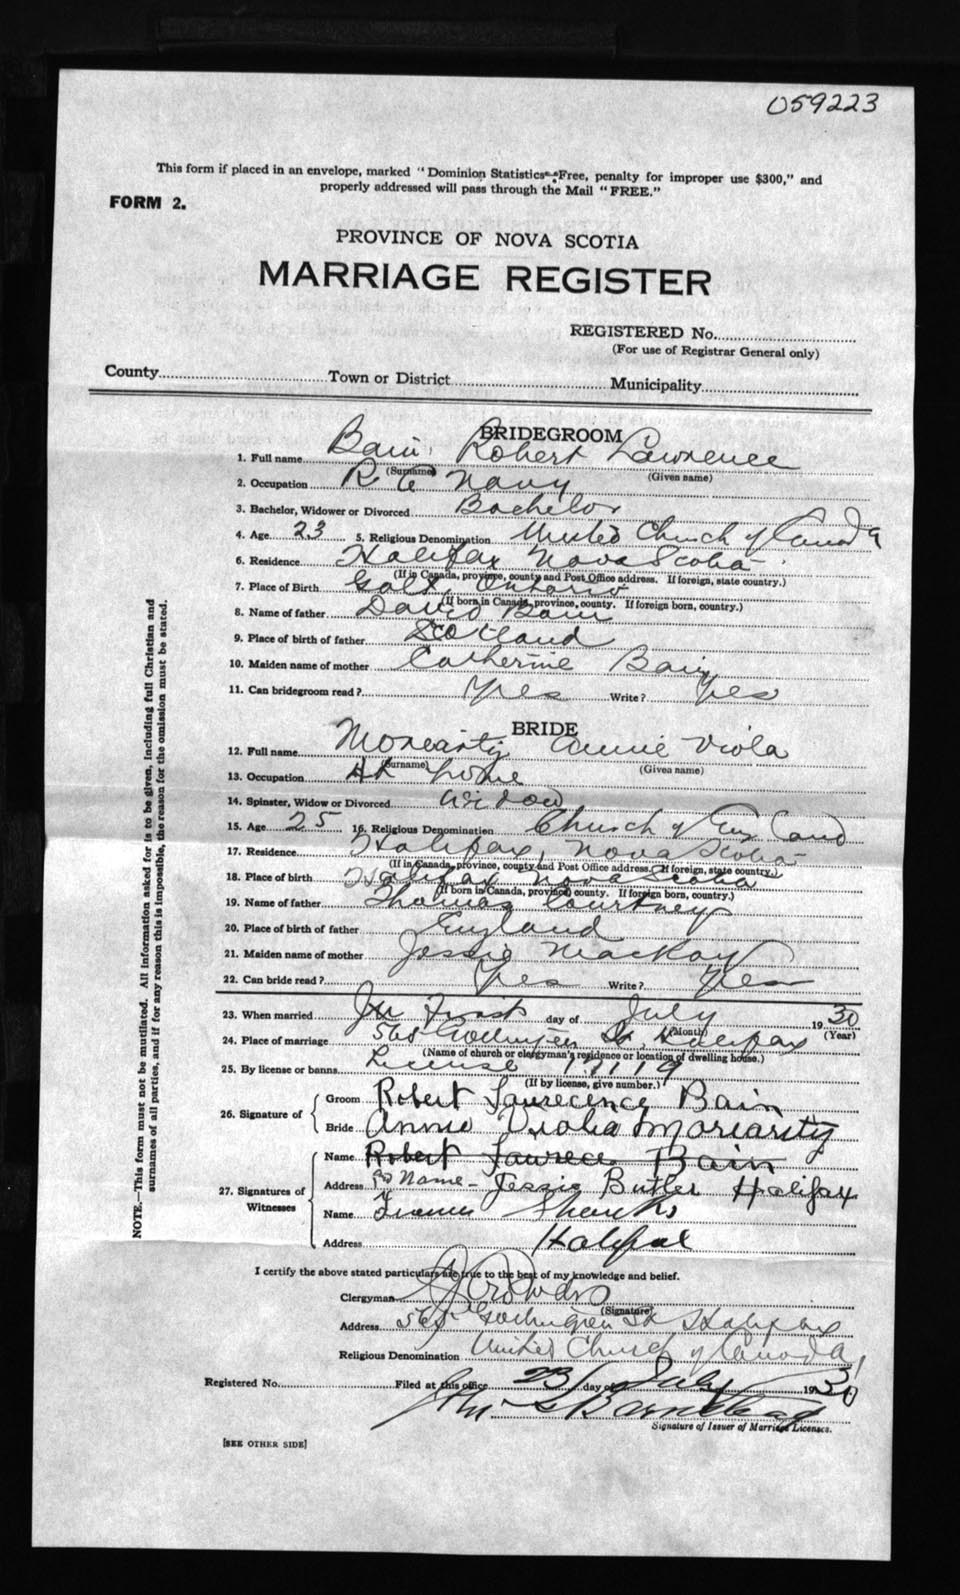 059223
This form if placed in an envelope, marked "Dominion Statistics—Free, penalty for improper use $300," and
properly addressed will pass through the Mail "FREE."
FORM 2.
PROVINCE OF NOVA SCOTIA
MARRIAGE REGISTER
REGISTERED No.
(For use of Registrar General only)
County Town or District Municipality
BRIDEGROOM
1. Full name Bain, Robert Lawrence
(Surname) (Given name)
2. Occupation R. C. Navy
3. Bachelor, Widower or Divorced Bachelor
4. Age 23 5. Religious Denomination United Church of Canada
6. Residence Halifax Nova Scotia
(If in Canada, province, county and Post Office address. If foreign, state country.)
7. Place of Birth Galt, Ontario
(If born in Canada, province, county. If foreign born, country.)
8. Name of father David Bain
9. Place of birth of father Scotland
10. Maiden name of mother Catherine Bain
11. Can bridegroom read? Yes Write? Yes
BRIDE
12. Full name Moriarity Annie Viola
(Surname) (Given name)
13. Occupation At home
14. Spinster, Widow or Divorced Widow
15. Age 25 16. Religious Denomination Church of England
17. Residence Halifax, Nova Scotia
(If in Canada, province, county and Post Office address. If foreign, state country.)
18. Place of birth Halifax Nova Scotia
(If born in Canada, province, county. If foreign born, country.)
19. Name of father Thomas Courtney
20. Place of birth of father England
21. Maiden name of mother Jessie MacKay
22. Can bride read? Yes Write? Yes
23. When married First day of July 1930
(Month) (Year)
24. Place of marriage 565 Gottingen St. Halifax
(Name of church or clergyman's residence or location of dwelling house.)
25. By license or banns License 11119
(If by license, give number.)
26. Signature of Groom Robert Laurecence Bain
Bride Annie Viola Moriarity
27. Signatures of Witnesses Name Robert Laurece Bain
Address Name - Jessie Butler Halifax
Name
Address Halifax
I certify the above stated particulars are true to the best of my knowledge and belief.
Clergyman
(Signature)
Address 565 Gottingen St Halifax
Religious Denomination United Church of Canada
Registered No. Filed at this office 23 day of July 1930
Signature of Issuer of Marriage Licenses.
[SEE OTHER SIDE]
NOTE.—This form must not be mutilated. All information asked for is to be given, including full Christian and
surnames of all parties, and if for any reason this is impossible, the reason for the omission must be stated.